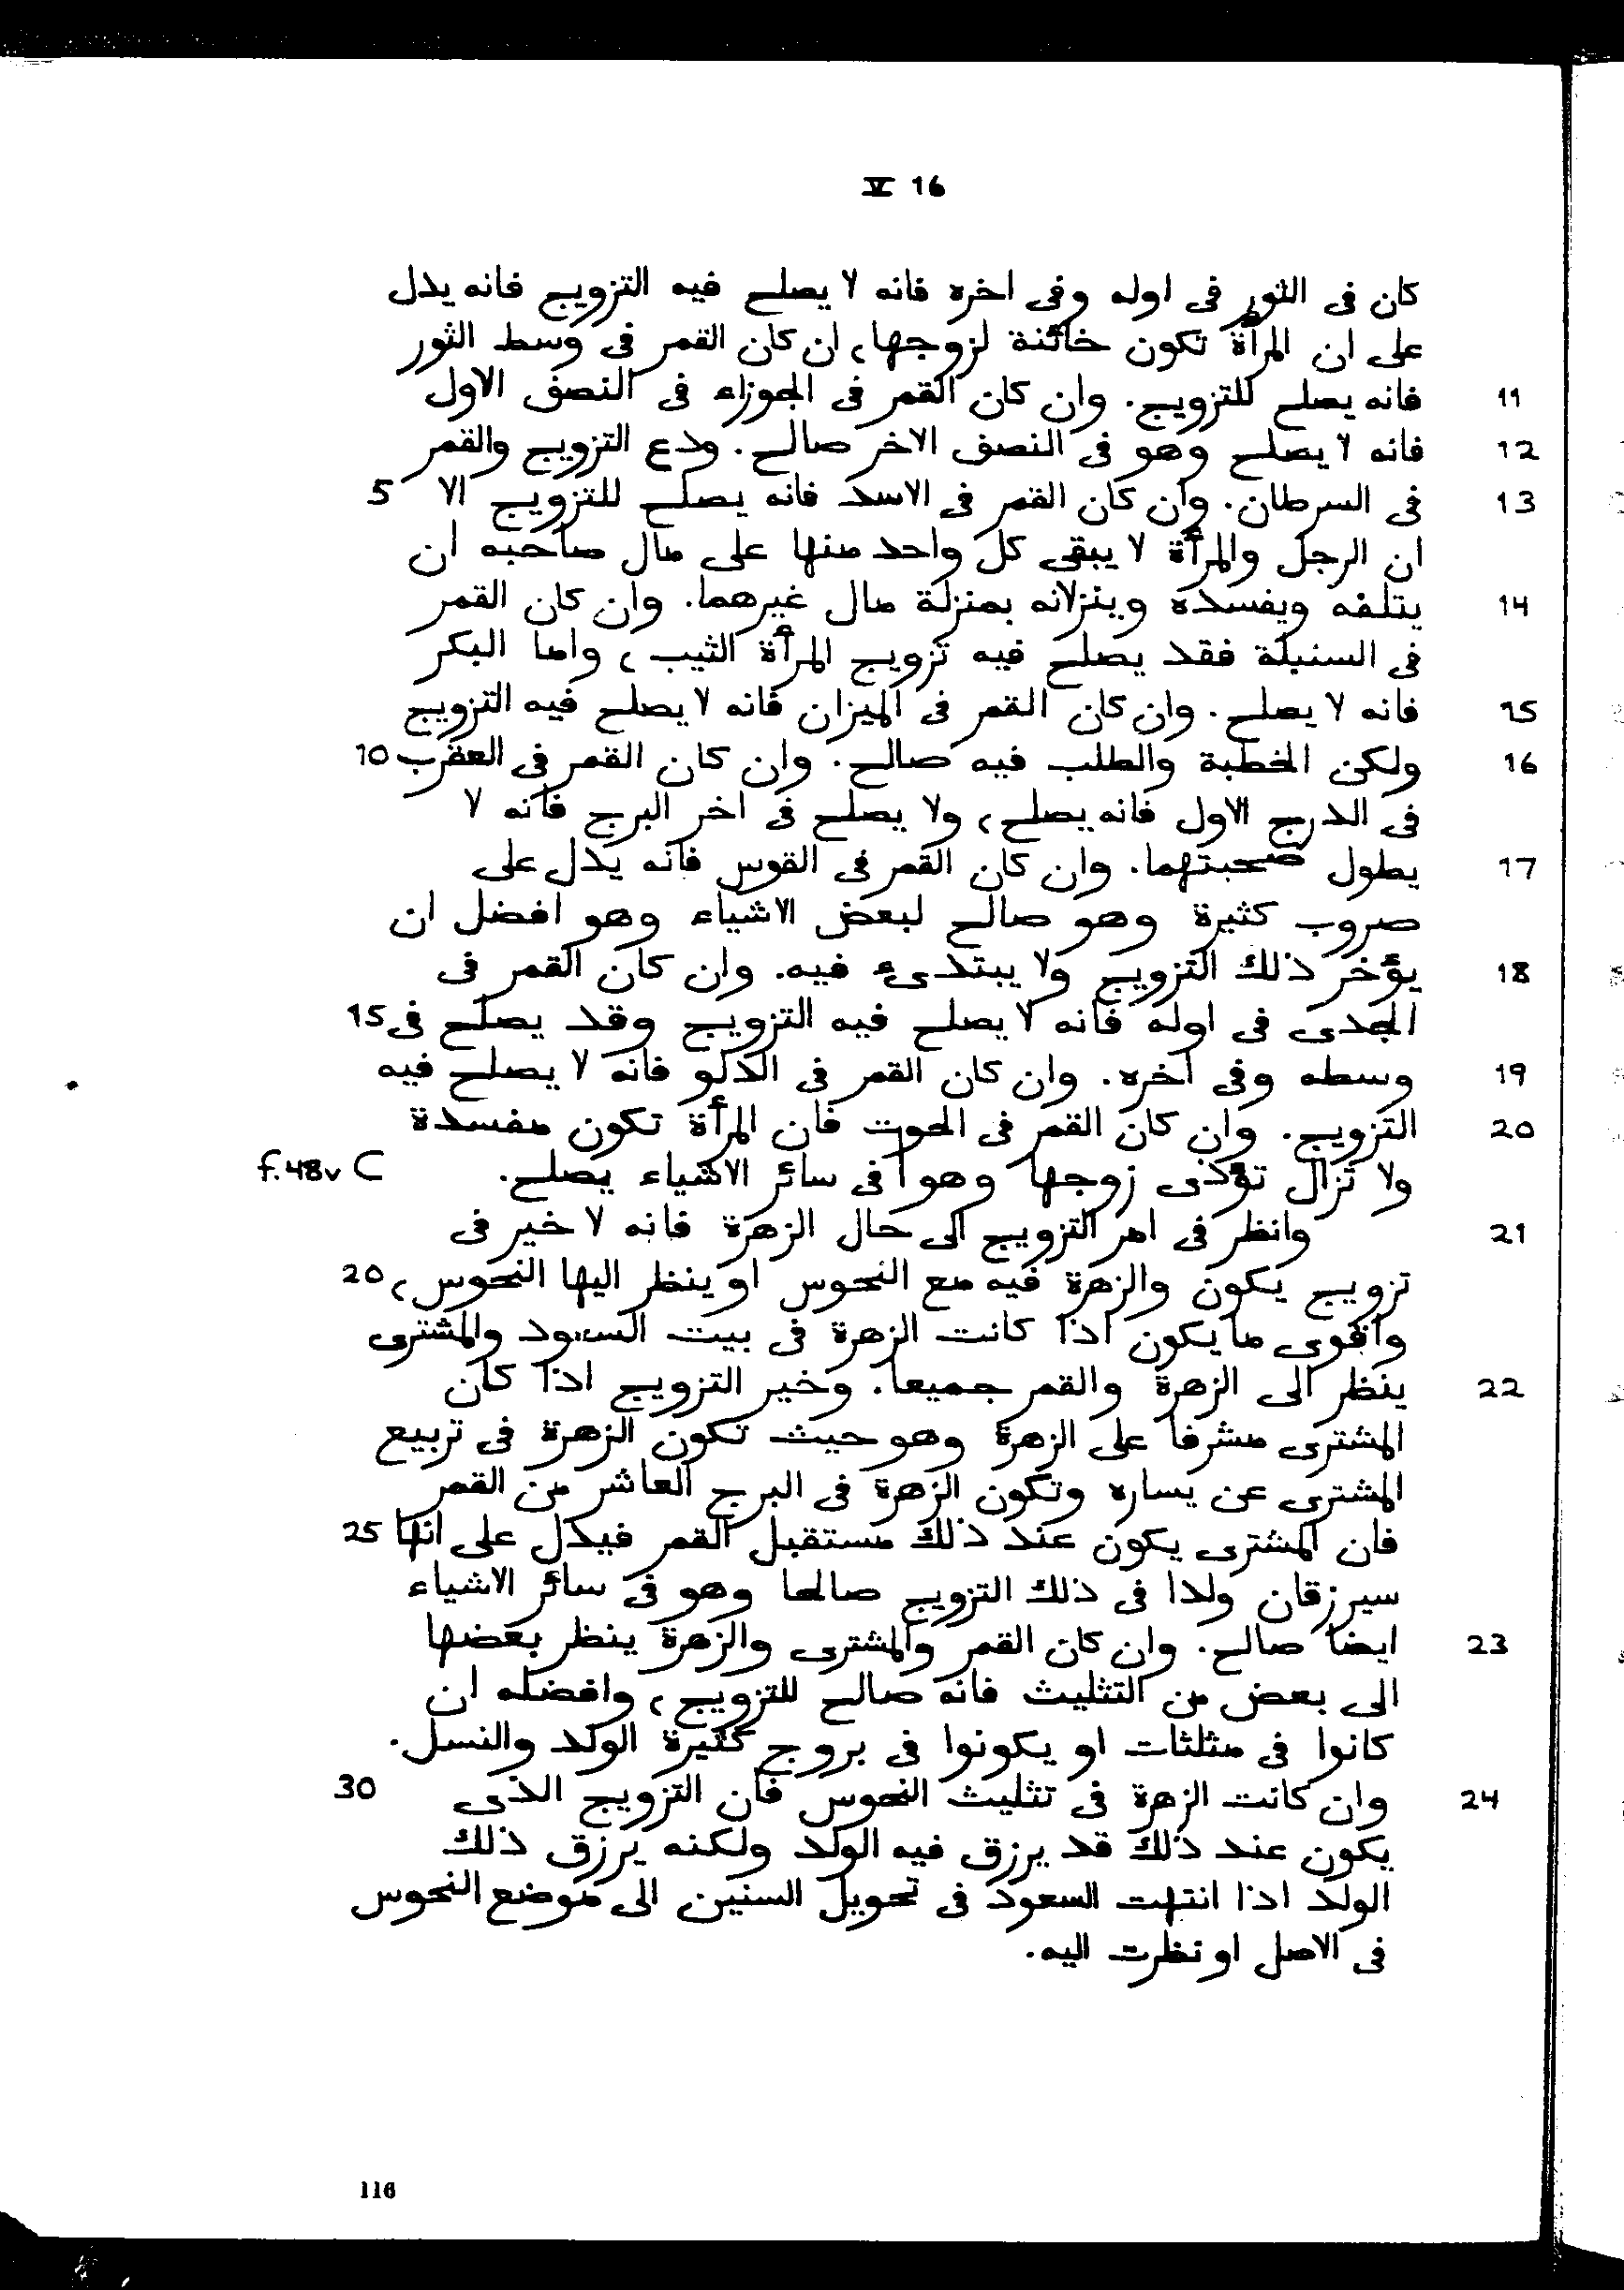 V 16
كان فى الثور فى اوله وفى اخره فانه لا يصلح فيه التزويج فانه يدل
على ان المرأة تكون خائنة لزوجها، ان كان القمر فى وسط الثور
11 فانه يصلح للتزويج. وان كان القمر فى الجوزاء فى النصف الاول
12 فانه لا يصلح وهو فى النصف الاخر صالح. ودع التزويج والقمر
13 فى السرطان. وان كان القمر فى الاسد فانه يصلح للتزويج الا 5
ان الرجل والمرأة لا يبقى كل واحد منها على مال صاحبه ان
14 يتلفه ويفسده وينزلانه بمنزلة مال غيرهما. وان كان القمر
فى السنبلة فقد يصلح فيه تزويج المرأة الثيب، واما البكر
15 فانه لا يصلح. وان كان القمر فى الميزان فانه لا يصلح فيه التزويج
16 ولكن الخطبة والطلب فيه صالح. وان كان القمر فى العقرب 10
فى الدرج الاول فانه يصلح، ولا يصلح فى اخر البرج فانه لا
17 يطول صحبتهما. وان كان القمر فى القوس فانه يدل على
صروب كثيرة وهو صالح لبعض الاشياء وهو افضل ان
18 يؤخر ذلك التزويج ولا يبتدىء فيه. وان كان القمر فى
الجدى فى اوله فانه لا يصلح فيه التزويج وقد يصلح فى 15
19 وسطه وفى اخره. وان كان القمر فى الدلو فانه لا يصلح فيه
20 التزويج. وان كان القمر فى الحوت فان المرأة تكون مفسدة
ولا تزال تؤذى زوجها وهو فى سائر الاشياء يصلح. f.48v C
21 وانظر فى امر التزويج الى حال الزهرة فانه لا خير فى
تزويج يكون والزهرة فيه مع النحوس او ينظر اليها النحوس، 20
واقوى ما يكون اذا كانت الزهرة فى بيت السعود والمشترى
22 ينظر الى الزهرة والقمر جميعا. وخير التزويج اذا كان
المشترى مشرفا على الزهرة وهو حيث تكون الزهرة فى تربيع
المشترى عن يساره وتكون الزهرة فى البرج العاشر من القمر
فان المشترى يكون عند ذلك مستقبل القمر فيدل على انها 25
سيرزقان ولدا فى ذلك التزويج صالحا وهو فى سائر الاشياء
23 ايضا صالح. وان كان القمر والمشترى والزهرة ينظر بعضها
الى بعض من التثليث فانه صالح للتزويج، وافضله ان
كانوا فى مثلثات او يكونوا فى بروج كثيرة الولد والنسل.
24 وان كانت الزهرة فى تثليث النحوس فان التزويج الذى 30
يكون عند ذلك قد يرزق فيه الولد ولكنه يرزق ذلك
الولد اذا انتهت السعود فى تحويل السنين الى موضع النحوس
فى الاصل او نظرت اليه.
116